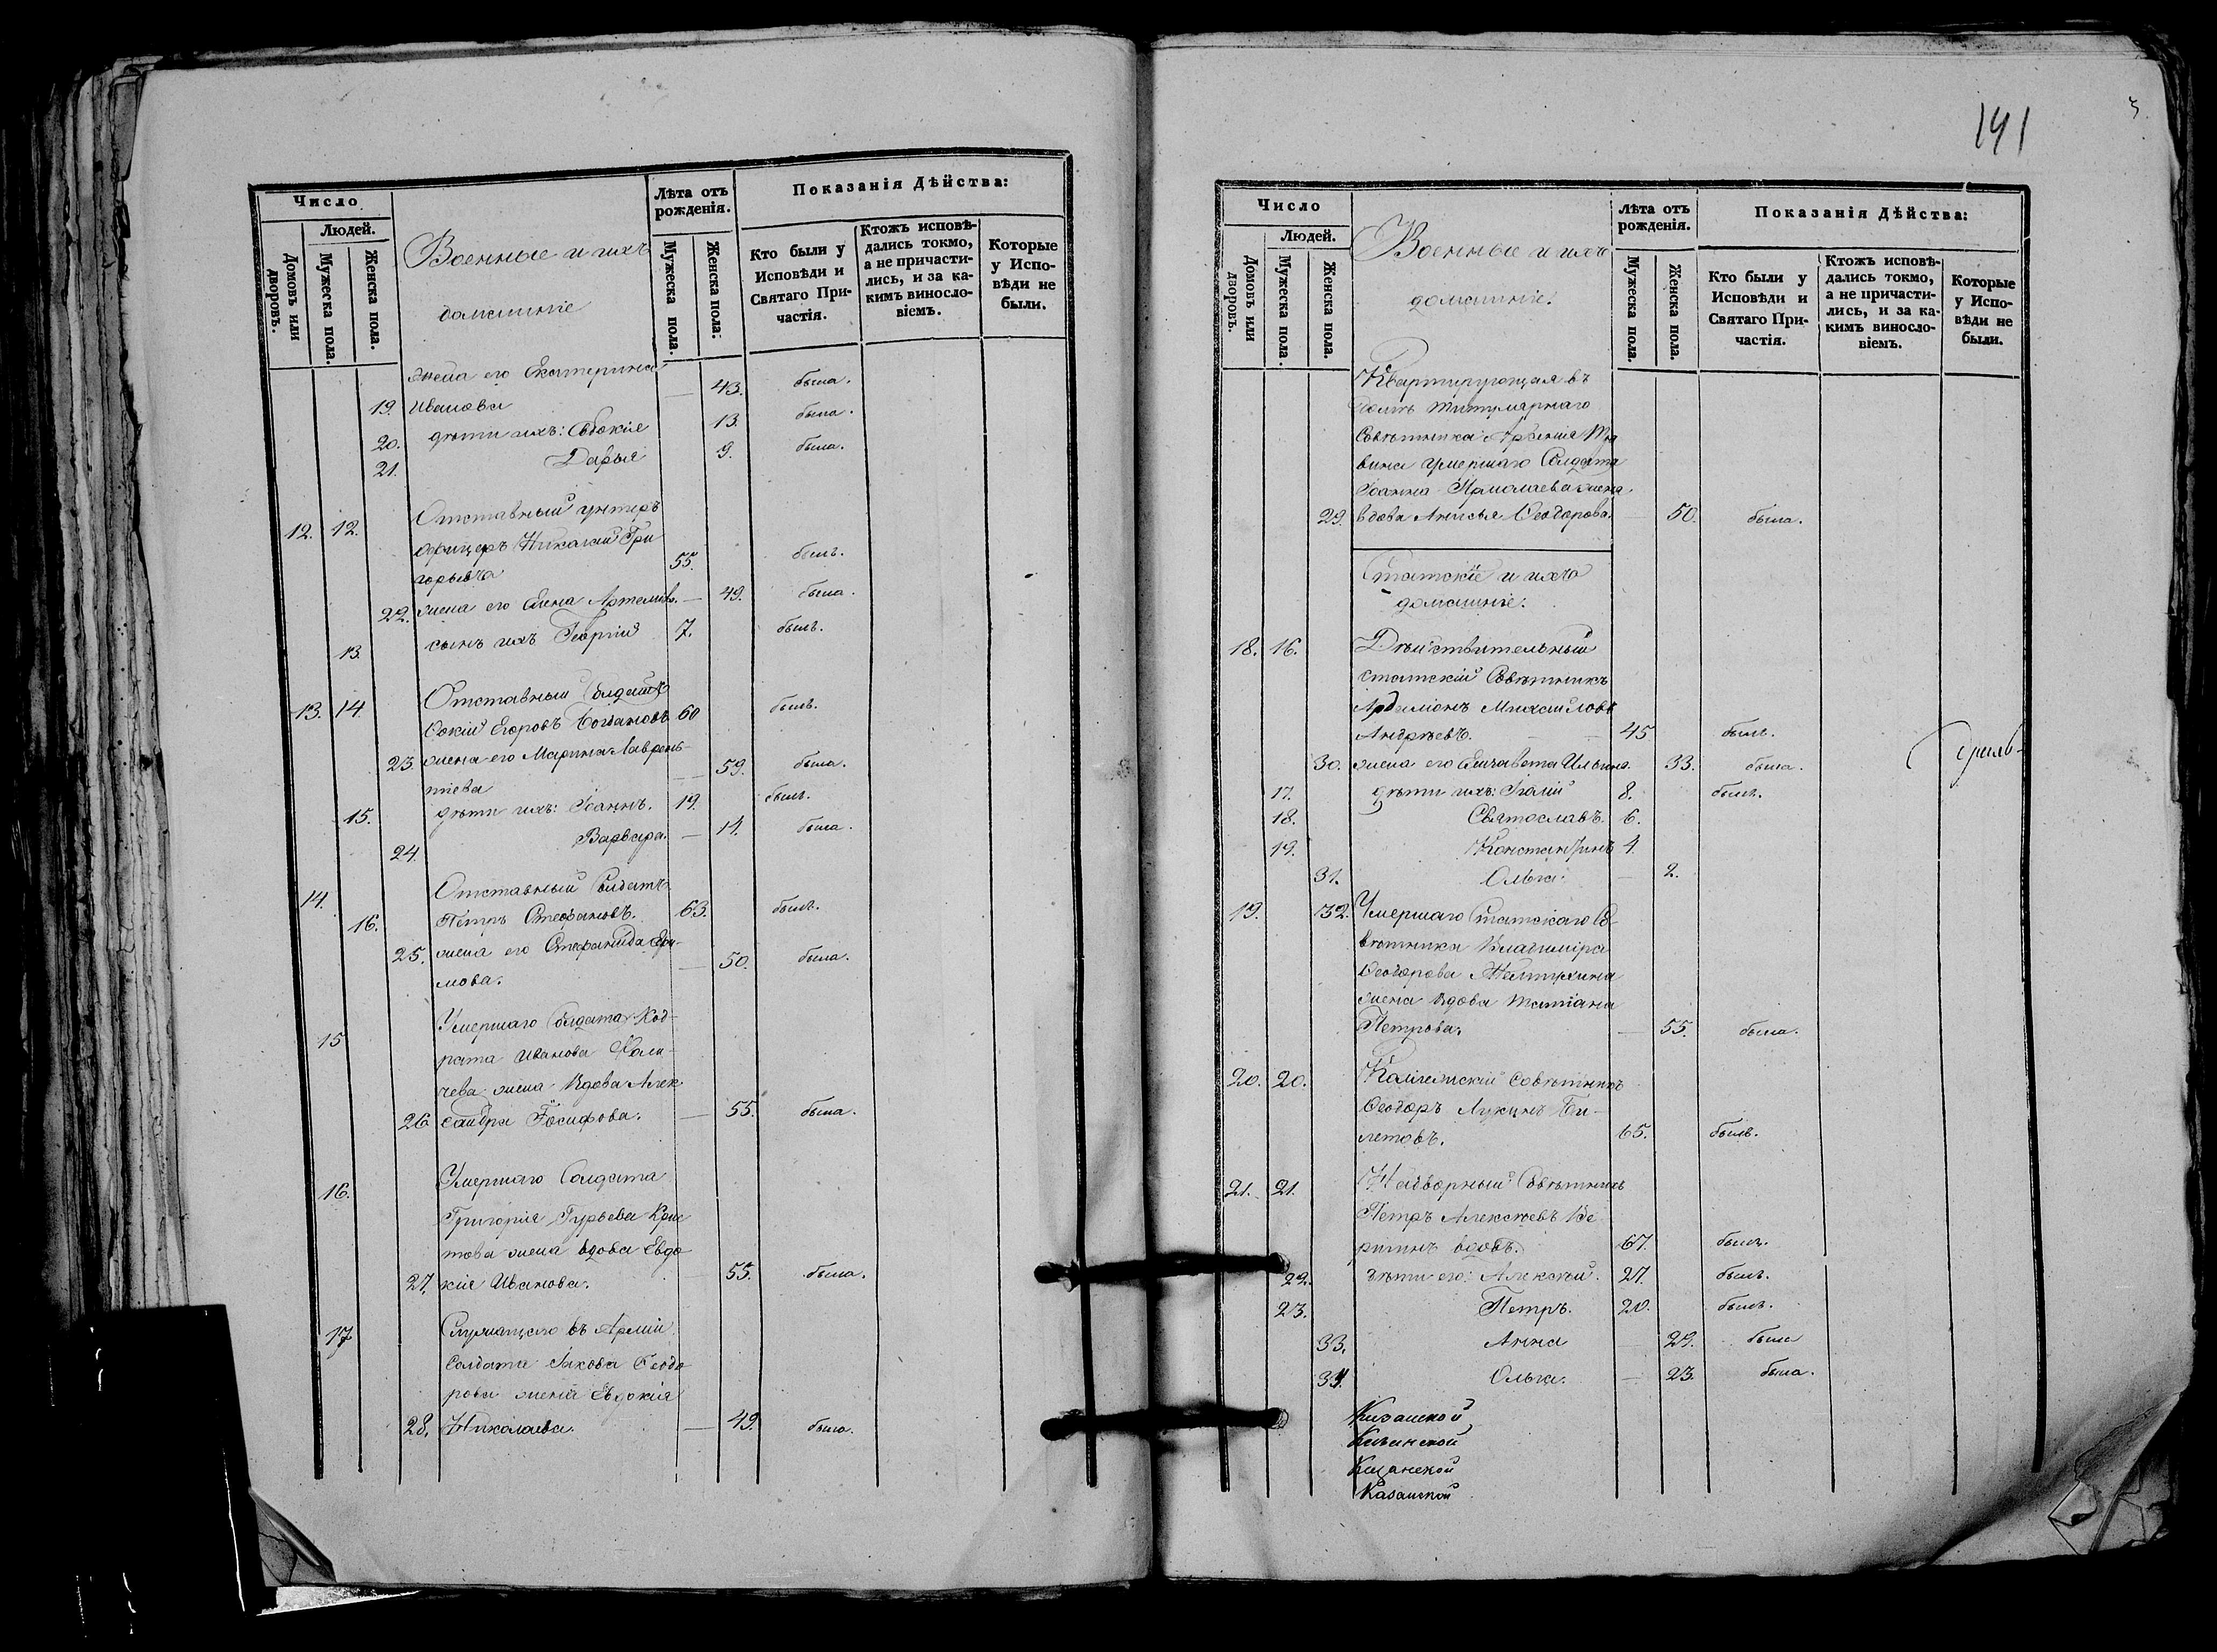 Число
Людей.
Домовъ или дворовъ.
Мужеска пола.
Женска пола.
Военные и ихъ
домашніе
Лѣта отъ рожденія.
Мужеска пола.
Женска пола.
Показанія Дѣйства:
Кто были у Исповѣди и Святаго Причастія.
Ктожъ исповѣдались токмо, а не причастились, и за какимъ винословіемъ.
Которые у Исповѣди не были.
жена его Екатерина
19. Иванова — 43. была.
20. дѣти ихъ: Евдокія 13. была.
21. Дарья 9. была.
12. 12. Отставный унтеръ
офицеръ Николай Гри
горьевъ 55. былъ.
22. жена его Елена Артемьев. — 49. была.
13. сынъ ихъ Георгій 7. былъ.
13. 14. Отставный Солдатъ
Егоровъ Богдановъ 60 былъ.
23. жена его Марина Лаврень-
тіева — 59. была.
15. дѣти ихъ: Іоаннъ. 19. былъ.
24. Варвара. — 14. была.
14. Отставный Солдатъ
16. Петръ Стефановъ. 63. былъ.
25. жена его Стефанида Ефи-
мова. — 50. была.
15 Умершаго Солдата Код-
рата Иванова
жена вдова Алек
26 сандра Іосифова. — 55. была.
16. Умершаго Солдата
Григорія Гурьева
жена вдова Евдо
27. кія Иванова. 55. была.
17 Служащаго въ Арміи
Солдата Іакова Ѳеодо
рова жена Евдокія
28. Николаева. — 49. была.
141
Число
Людей.
Домовъ или дворовъ.
Мужеска пола.
Женска пола.
Военные и ихъ
домашніе.
Лѣта отъ рожденія.
Мужеска пола.
Женска пола.
Показанія Дѣйства:
Кто были у Исповѣди и Святаго Причастія.
Ктожъ исповѣдались токмо, а не причастились, и за какимъ винословіемъ.
Которые у Исповѣди не были.
Квартирующая въ
домѣ титулярнаго
Совѣтника Арсенія
умершаго Солдата
Іоанна Ярмолаева жена
29. вдова Анисья Ѳеодорова. — 50. была.
Статскіе и ихъ
домашніе.
18. 16. Дѣйствительный
статскій Совѣтникъ
Ардаліонъ Михаиловъ
Андреевъ. — 45. былъ.
30. жена его Елизавета Ильина. 33. была.
17. дѣти ихъ: Юлій 8. былъ.
18. Святославъ. 6.
19. Константинъ 4.
31. Ольга. — 2.
19. 32. Умершаго Статскаго Со
вѣтника Владиміра
Ѳеодорова Желтухина
жена вдова Татіана
Петрова. — 55. была.
20. 20. Коллежскій Совѣтникъ
Ѳеодоръ Лукинъ Би-
летовъ. 65. былъ.
21. 21. Надворный Совѣтникъ
Петръ Алексѣевъ Ве
ригинъ вдовъ. 67. былъ.
22. дѣти его: Алексѣй. 27. былъ.
23. Петръ. 20. былъ.
33. Анна — 29. была
34. Ольга. — 23. была.
Казанской
Казанской
Казанской
Казанской